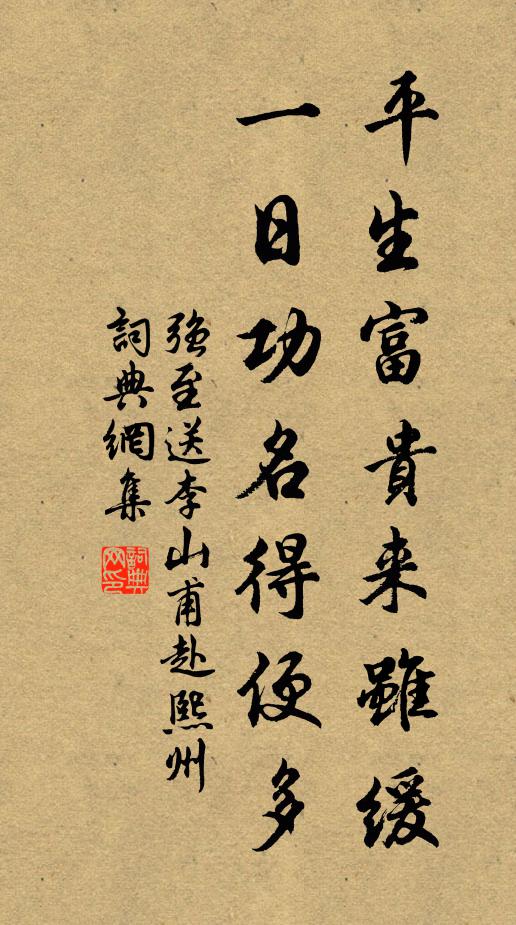 平生富貴来雖緩
一日功名得便多
強至送李山甫赴熙州
詞典網集
詞典网印